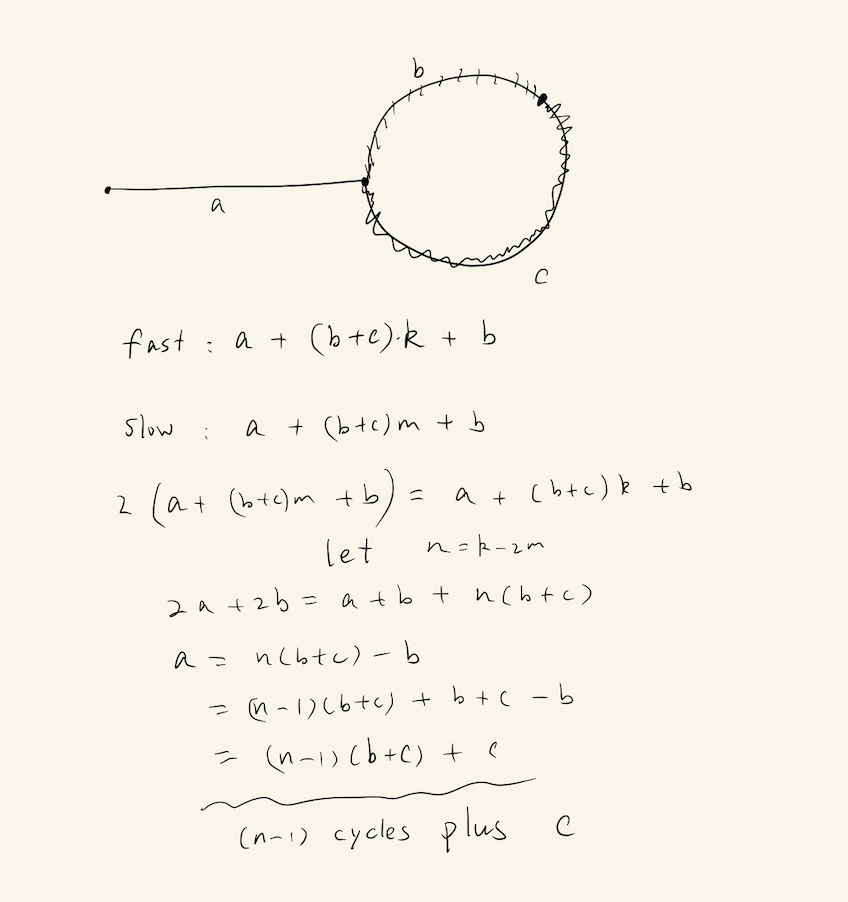 b
a
c
fast : a + (b+c)·k + b
slow : a + (b+c)m + b
2 (a+ (b+c)m +b) = a + (b+c)k +b
let n=k-2m
2a+2b= a+b + n(b+c)
a = n(b+c) - b
= (n-1)(b+c) + b+c -b
= (n-1)(b+c) + c
(n-1) cycles plus c